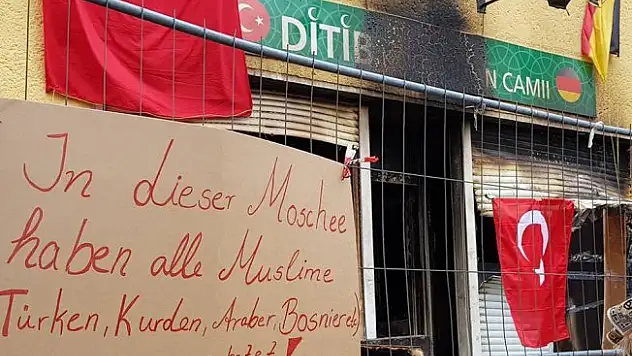 DİTİB CAMII
In dieser Moschee
haben alle Muslime
Türken, Kurden, Araber, Bosnier etc
!